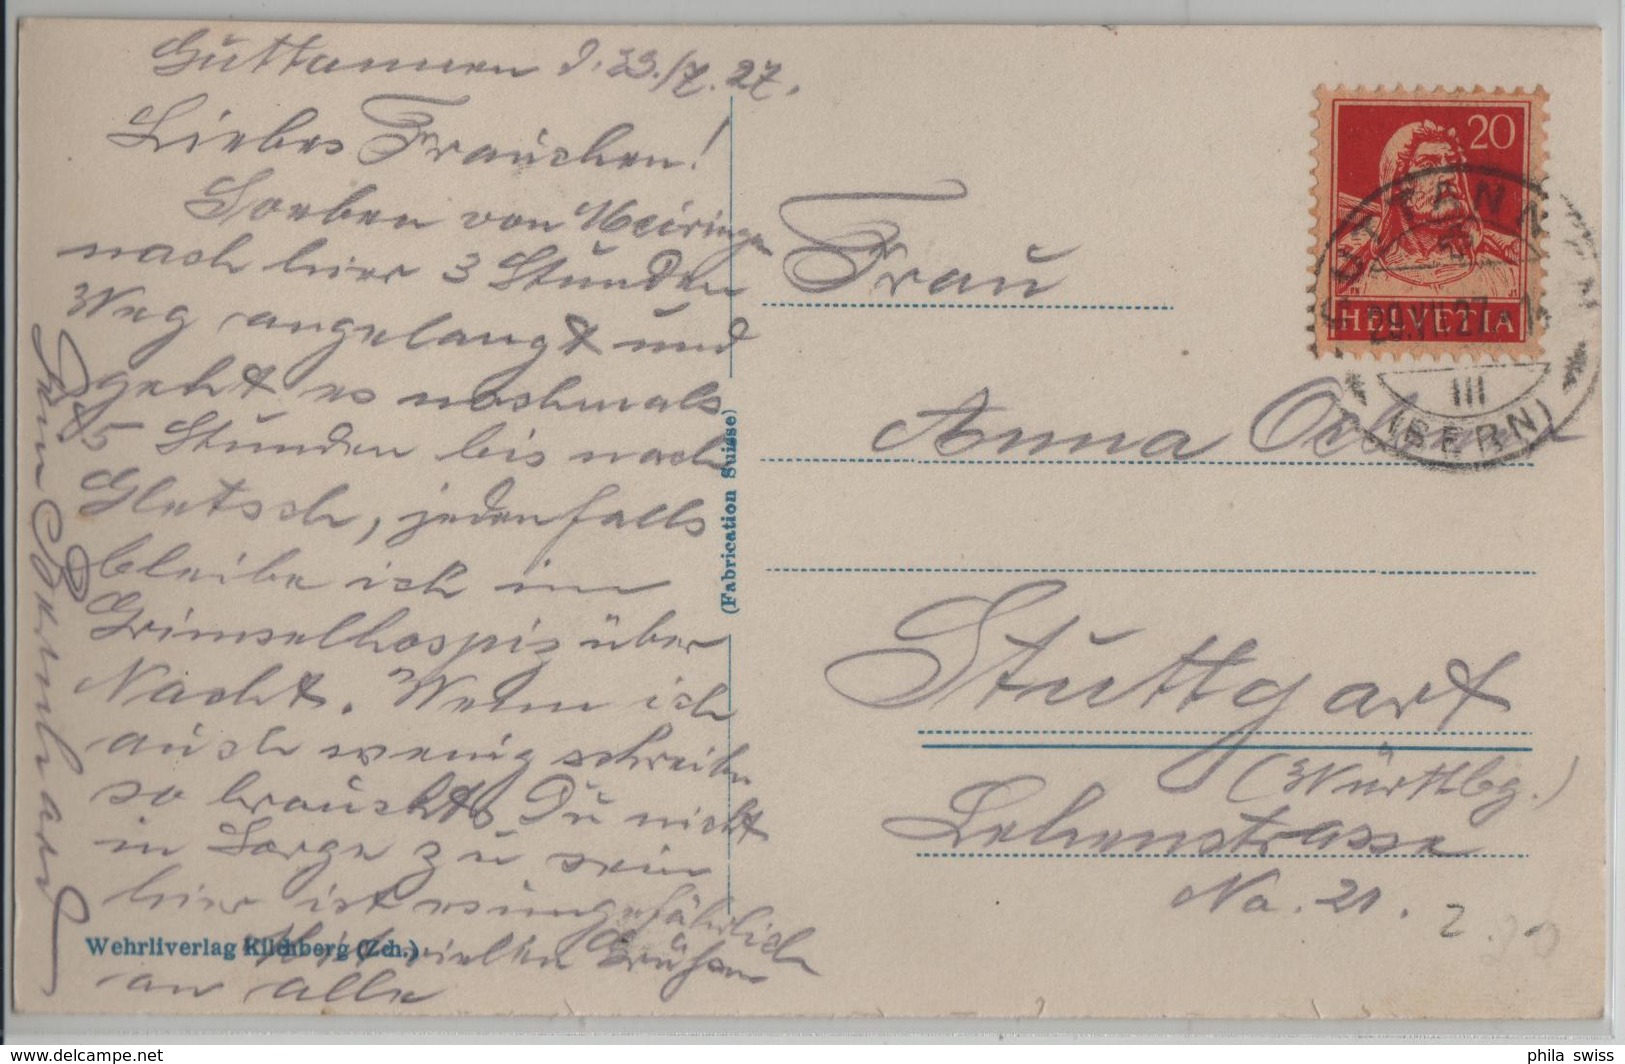 Guttannen d. 29./7. 27.
Liebes Frauchen!
Soeben von Meiringen
nach hier 3 Stunden
Weg angelangt und
geht es nochmals
5 Stunden bis nach
Gletsch, jedenfalls
bleibe ich im
Grimselhospiz über
Nacht. Wenn ich
auch wenig schreibe
so brauchts Du nicht
in Sorge zu sein
hier ist es ungefährlich
Mit vielen Grüßen
an alle
Dein Bernhard
Wehrliverlag Kilchberg (Zch.)
(Fabrication Suisse)
20
HELVETIA
GUTTANNEN
29.VII.27
III
(BERN)
Frau
Anna
Stuttgart
(Württbg.)
Lehenstrasse
No. 21.
phila swiss